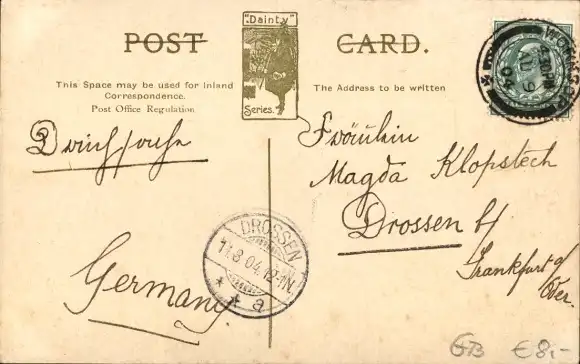 POST CARD.
"Dainty"
Series.
This Space may be used for Inland
Correspondence.
Post Office Regulation
The Address to be written
Drucksache
Fräulein
Magda Klopstech
Drossen b/
Frankfurt a/
Oder.
Germany
DROSSEN
11.8.04.12-1N.
* * a
AU 9
04
GB €8,-